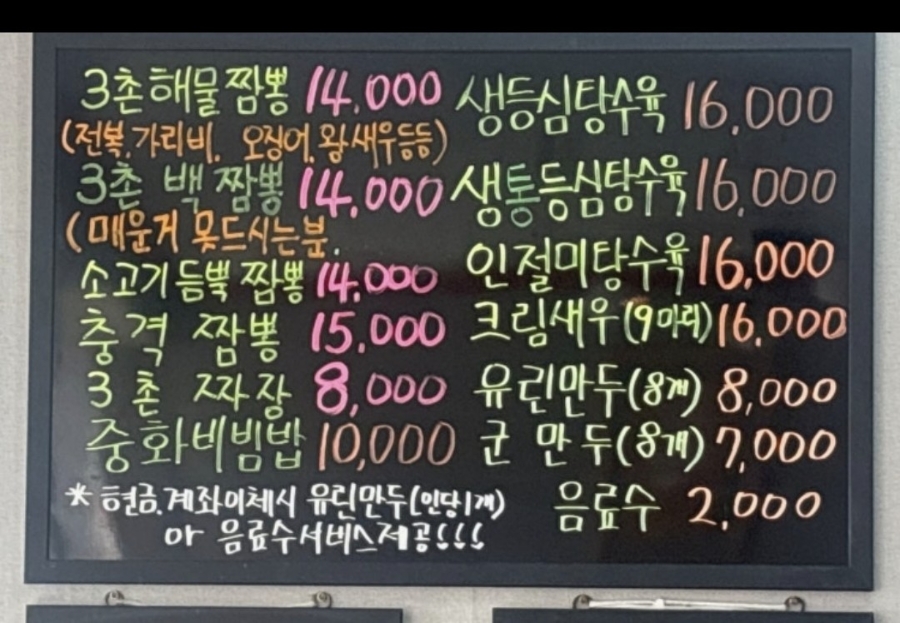 3촌해물짬뽕 14.000
(전복.가리비. 오징어.왕새우등등)
3촌 백짬뽕 14.000
(매운거 못드시는분.
소고기듬뿍짬뽕 14.000
충격 짬뽕 15.000
3촌 짜장 8,000
중화비빔밥 10,000
생등심탕수육 16.000
생통등심탕수육 16.000
인절미탕수육 16,000
크림새우(9마리) 16.000
유린만두(8개) 8,000
군만두(8개) 7,000
음료수 2,000
* 현금.계좌이체시 유린만두(인당1개)
or 음료수서비스제공!!!